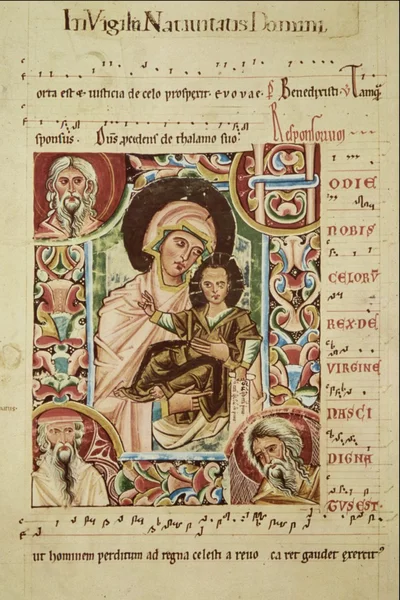 In Vigilia Natiuitatis Domini.
orta est & iusticia de celo prosperit. e v o v a e. Benedixisti. v Tamq̄
sponsus. Dn̄s p̄cedens de thalamo suo. Responsorium
ODIE
NOBIS
CELORV̄
REX DE
VIRGINE
NASCI
DIGNA
TVS EST.
ut hominem perditum ad regna celesti a reuo ca ret gaudet exercit⁹